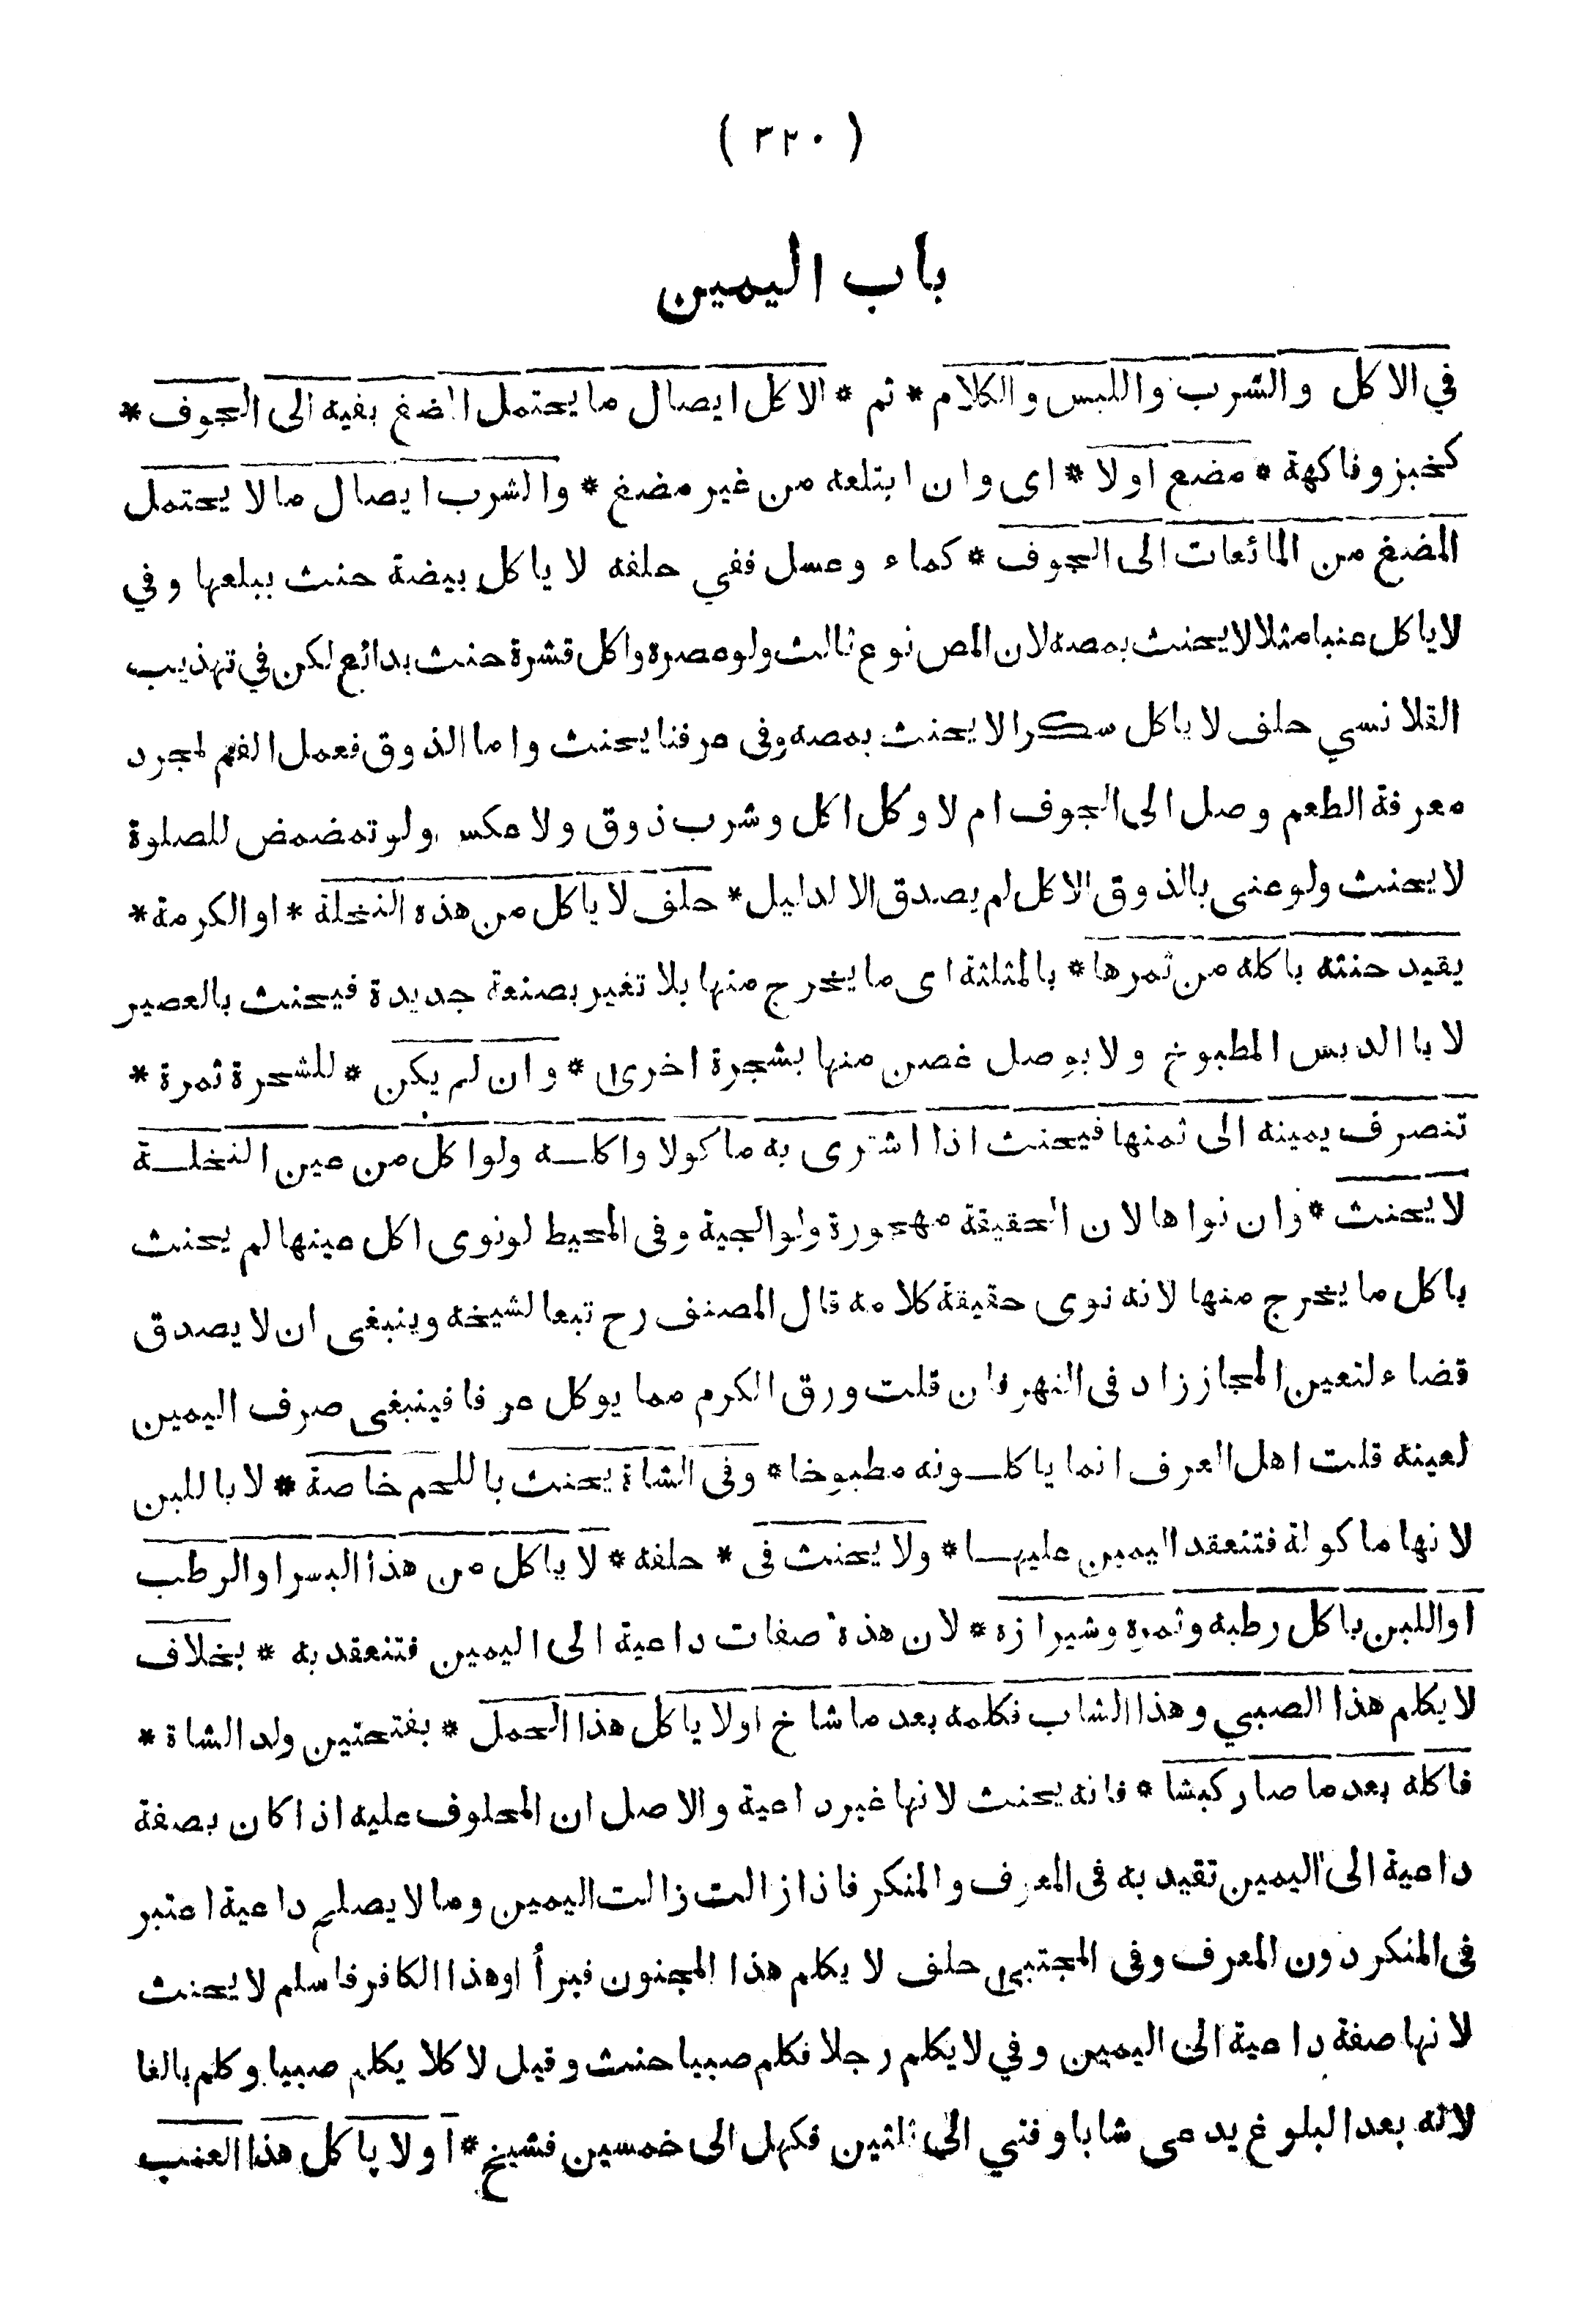 ( ٣٢٠ )
باب اليمين
في الاكل والشرب واللبس والكلام * ثم * الاكل ايصال ما يحتمل المضغ بفيه الى الجوف *
كخبز وفاكهة * مضغ اولا * اى وان ابتلعه من غير مضغ * والشرب ايصال مالا يحتمل
المضغ من المائعات الى الجوف * كماء وعسل ففي حلفه لا ياكل بيضة حنث ببلعها وفي
لا ياكل عنبا مثلا لا يحنث بمصه لان المص نوع ثالث ولو عصره واكل قشرة حنث بدائع لكن في تهذيب
القلانسي حلف لا ياكل سكرا لا يحنث بمصه وفى عرفنا يحنث واما الذوق فعمل الفم لمجرد
معرفة الطعم وصل الى الجوف ام لا وكل اكل وشرب ذوق ولا عكس ولو تمضمض للصلوة
لا يحنث ولو عنى بالذوق الاكل لم يصدق الا لدليل * حلف لا ياكل من هذه النخلة * او الكرمة *
يقيد حنثه باكله من ثمرها * بالمثلثة اى ما يخرج منها بلا تغير بصنعة جديدة فيحنث بالعصير
لا باالدبس المطبوخ ولا بوصل غصن منها بشجرة اخرى * وان لم يكن * للشجرة ثمرة *
تنصرف يمينه الى ثمنها فيحنث اذا اشترى به ماكولا واكله ولو اكل من عين النخلة
لا يحنث * وان نواها لان الحقيقة مهجورة ولوالجية وفى المحيط لو نوى اكل عينها لم يحنث
باكل ما يخرج منها لانه نوى حقيقة كلامه قال المصنف رح تبعا لشيخه وينبغى ان لا يصدق
قضاء لتعين المجاز زاد فى النهر فان قلت ورق الكرم مما يوكل عرفا فينبغى صرف اليمين
لعينه قلت اهل العرف انما ياكلونه مطبوخا * وفى الشاة يحنث باللحم خاصة * لا باللبن
لانها ماكولة فتنعقد اليمين عليها * ولا يحنث فى * حلفه * لا ياكل من هذا البسر او الرطب
او اللبن باكل رطبه وتمره وشيرازه * لان هذه صفات داعية الى اليمين فتنعقد به * بخلاف
لا يكلم هذا الصبي وهذا الشاب فكلمه بعد ما شاخ اولا ياكل هذا الحمل * بفتحتين ولد الشاة *
فاكله بعد ما صار كبشا * فانه يحنث لانها غير داعية والاصل ان المحلوف عليه اذا كان بصفة
داعية الى اليمين تقيد به فى المعرف والمنكر فاذا زالت زالت اليمين وما لا يصلح داعية اعتبر
فى المنكر دون المعرف وفى المجتبى حلف لا يكلم هذا المجنون فبرأ اوهذا الكافر فاسلم لا يحنث
لانها صفة داعية الى اليمين وفي لا يكلم رجلا فكلم صبيا حنث وقيل لا كلا يكلم صبيا وكلم بالغا
لانه بعد البلوغ يدعى شابا وفتي الى ثلثين فكهل الى خمسين فشيخ * اولا ياكل هذا العنب